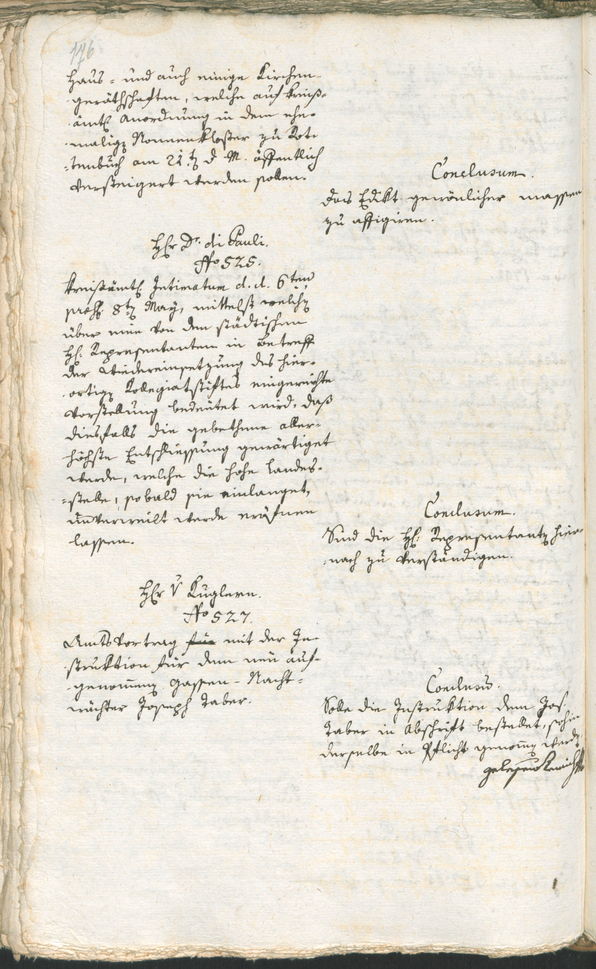 176
Haus- und auch einige Kirchen-
geräthschaften, welche auf kreis-
ämtl Anordnung in dem ehe-
malig Nonnenkloster zu Rot-
tenbuch am 21t d. M. öffentlich
versteigert werden sollen.
Conclusum.
Das Edikt gewönlicher massen
zu affigiren.
Hr Dr. di Pauli.
No 525.
Kreisämtl Intimatum d. d. 6ten
pras 8t May, mittelst welch
über eine von den städtischen
H. Representanten in Betreff
der Wiedereinsetzung des hier-
ortig Kollegiatstiftes eingereichte
Vorstellung bedeutet wird, daß
diesfalls die gebethene aller-
höchste Entschliessung gewärtiget
werde, welche die hohe Landes-
stelle, sobald sie einlanget,
unverweilt werde eröfnen
lassen.
Conclusum.
Sind die H. Representant hier-
nach zu verständigen.
Hr v Kuglern.
No 527.
Amtsvortrag für mit der In-
struktion für dem neu auf-
genomen Gassen-Nacht-
wächter Joseph Faber.
Conclusum.
Solle die Instruktion dem Jos.
Faber in Abschrift bestellet, sohin
derselbe in Pflicht genomen werden